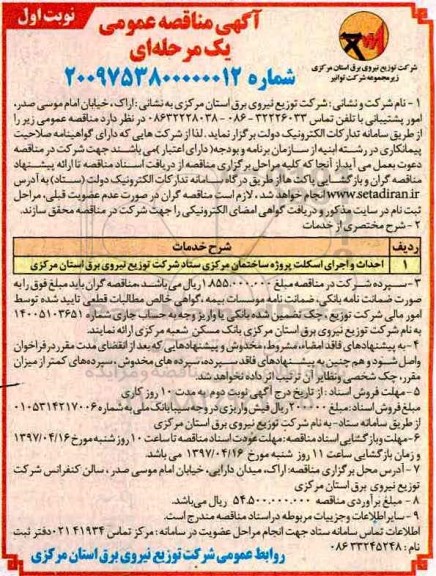 نوبت اول
آگهی مناقصه عمومی
یک مرحله‌ای
شماره ۲۰۰۹۷۵۳۸۰۰۰۰۰۰۱۲
شرکت توزیع نیروی برق استان مرکزی
زیرمجموعه شرکت توانیر
۱ - نام شرکت و نشانی : شرکت توزیع نیروی برق استان مرکزی به نشانی : اراک، خیابان امام موسی صدر،
امور پشتیبانی با تلفن تماس ۳۲۲۲۶۰۳۳ - ۰۸۶ - ۰۸۶۳۲۲۲۸۰۳۸ در نظر دارد مناقصه عمومی زیر را
از طریق سامانه تدارکات الکترونیک دولت برگزار نماید . لذا از شرکت هایی که دارای گواهینامه صلاحیت
پیمانکاری در رشته ابنیه از سازمان برنامه و بودجه( دارای اعتبار )می باشند جهت شرکت در مناقصه
دعوت بعمل می آید.از آنجا که کلیه مراحل برگزاری مناقصه از دریافت اسناد مناقصه تا ارائه پیشنهاد
مناقصه گران و بازگشایی پاکت ها از طریق درگاه سامانه تدارکات الکترونیک دولت (ستاد) به آدرس
www.setadiran.ir انجام خواهد شد ، لازم است مناقصه گران در صورت عدم عضویت قبلی، مراحل
ثبت نام در سایت مذکور و دریافت گواهی امضای الکترونیکی را جهت شرکت در مناقصه محقق سازند.
۲ - شرح مختصری از خدمات
ردیف شرح خدمات
۱ احداث و اجرای اسکلت پروژه ساختمان مرکزی ستاد شرکت توزیع نیروی برق استان مرکزی
۳ -سپرده شرکت در مناقصه مبلغ ۱.۸۵۵.۰۰۰.۰۰۰ ریال می باشد.مناقصه گران باید مبلغ فوق را به
صورت ضمانت نامه بانکی، ضمانت نامه موسسات بیمه ،گواهی خالص مطالبات قطعی تایید شده توسط
امور مالی شرکت توزیع، چک تضمین شده بانکی یا واریز وجه به حساب جاری شماره ۱۴۰۰۵۱۰۳۶۵۱
به نام شرکت توزیع نیروی برق استان مرکزی بانک مسکن شعبه مرکزی ارائه نمایند.
۴ - به پیشنهادهای فاقد امضاء، مشروط ، مخدوش و پیشنهادهایی که بعد از انقضای مدت مقرر در فراخوان
واصل شود و هم چنین به پیشنهادهای فاقد سپرده، سپرده های مخدوش، سپرده های کمتر از میزان
مقرر، چک شخصی و نظایر آن ترتیب اثر داده نخواهد شد.
۵ - مهلت فروش اسناد : از تاریخ درج آگهی نوبت دوم به مدت ۱۰ روز کاری
مبلغ فروش اسناد: مبلغ ۲۰۰.۰۰۰ ریال فیش واریزی در وجه سیبا بانک ملی به شماره ۰۱۰۵۳۱۴۲۱۷۰۰۶
از طریق سامانه ستاد - به نام شرکت توزیع نیروی برق استان مرکزی
۶ -مهلت و بازگشایی اسناد مناقصه: مهلت عودت اسناد مناقصه تا ساعت ۱۰ روز شنبه مورخ ۱۳۹۷/۰۴/۱۶
و زمان بازگشایی ساعت ۱۱ روز شنبه مورخ ۱۳۹۷/۰۴/۱۶ می باشد
۷ - آدرس محل برگزاری مناقصه: اراک، میدان دارایی، خیابان امام موسی صدر ، سالن کنفرانس شرکت
توزیع نیروی برق استان مرکزی
۸ - مبلغ برآوردی مناقصه ۵۴.۵۰۰.۰۰۰.۰۰۰ ریال می‌باشد.
۹ - سایر اطلاعات و جزییات مربوطه در اسناد مناقصه مندرج است.
اطلاعات تماس سامانه ستاد جهت انجام مراحل عضویت در سامانه : مرکز تماس ۴۱۹۳۴ ۰۲۱ دفتر ثبت
نام : ۳۳۲۴۵۲۴۸ ۰۸۶
روابط عمومی شرکت توزیع نیروی برق استان مرکزی